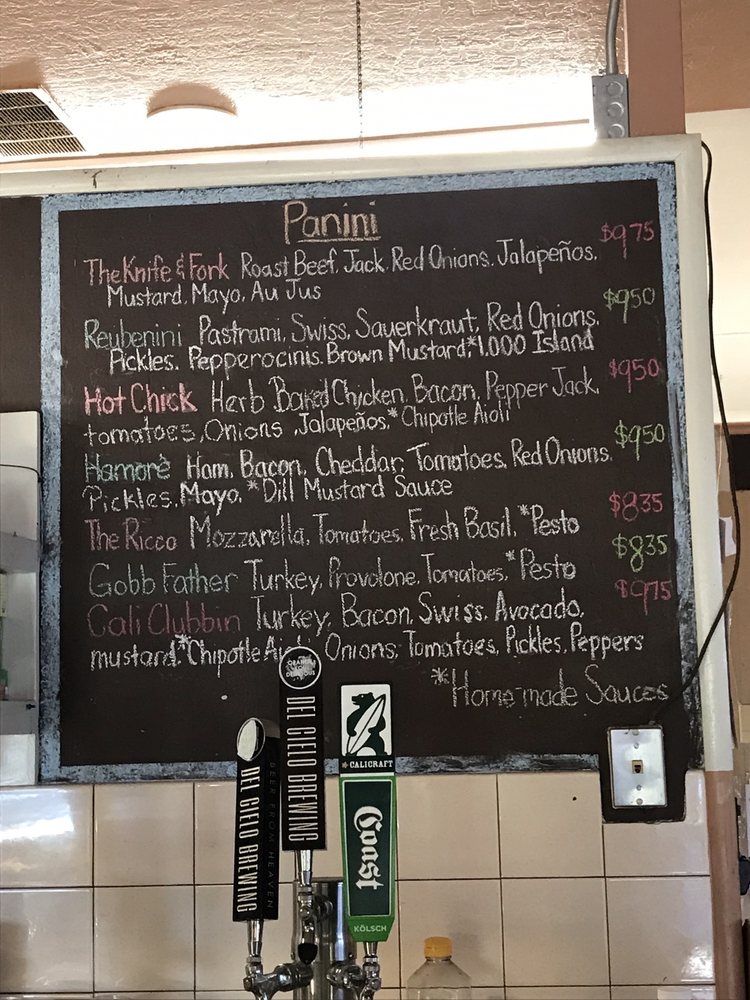 Panini
The Knife & Fork Roast Beef, Jack, Red Onions, Jalapeños, $9.75
Mustard, Mayo, Au Jus
Reubenini Pastrami, Swiss, Sauerkraut, Red Onions, $9.50
Pickles, Pepperocinis, Brown Mustard, *1,000 Island
Hot Chick Herb Baked Chicken, Bacon, Pepper Jack, $9.50
tomatoes, Onions, Jalapeños, *Chipotle Aioli
Hamoré Ham, Bacon, Cheddar, Tomatoes, Red Onions, $9.50
Pickles, Mayo, *Dill Mustard Sauce
The Ricco Mozzarella, Tomatoes, Fresh Basil, *Pesto $8.35
Gobb Father Turkey, Provolone, Tomatoes, *Pesto $8.35
Cali Clubbin Turkey, Bacon, Swiss, Avocado, $9.75
mustard, *Chipotle Aioli Onions, Tomatoes, Pickles, Peppers
*Home made Sauces
DEL CIELO BREWING
BEER FROM HEAVEN
DEL CIELO BREWING
CALICRAFT
Coast
KÖLSCH